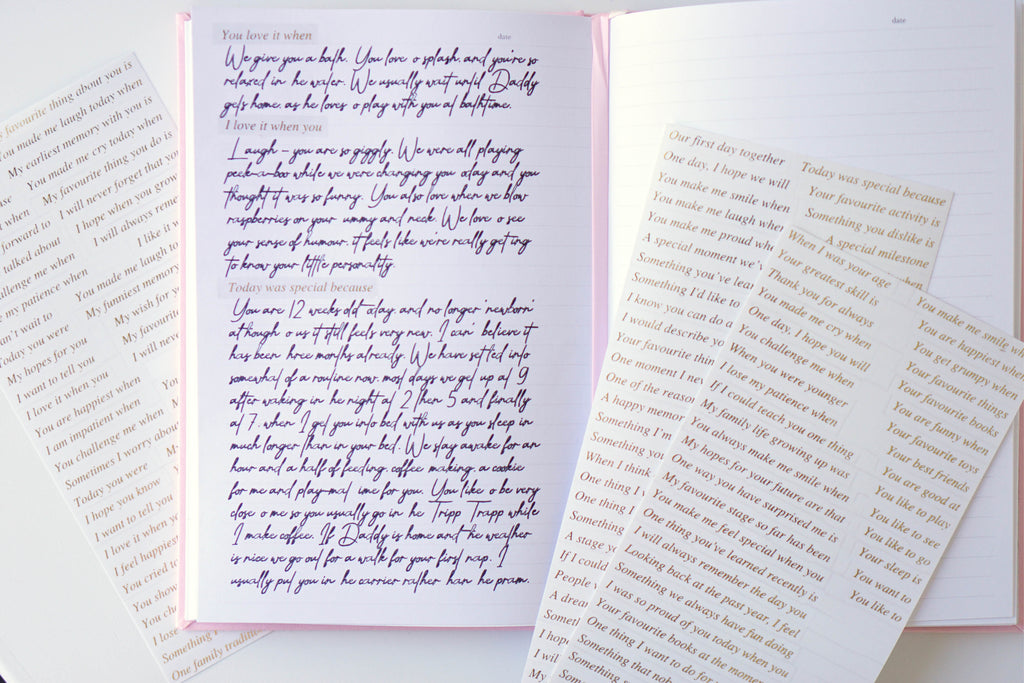 favourite thing about you is
You made me laugh today when
My earliest memory with you is
You made me cry today when
My favourite thing you do is
I will never forget that you
I hope when you grow
I will always reme
I like it
forward to
talked about
challenge me when
my patience when
You made me laugh to
My funniest memory
can't wait to
Today you were
My wish for y
My hopes for you
My favourite
I want to tell you
I will neve
I love it when you
You are happiest when
I am impatient when
You challenge me when
Sometimes I worry about
Today you were
I hope you know
I want to tell you
I love it when you
I feel happiest
You cried to
You show
You cha
I lose
Something I
One family traditio
You love it when
date
We give you a bath. You love o splash, and you're so
relaxed in he water. We usually wait until Daddy
gets home, as he loves o play with you at bathtime.
I love it when you
Laugh - you are so giggly. We were all playing
peek-a-boo while we were changing you oday and you
thought it was so funny. You also love when we blow
raspberries on your ummy and neck. We love o see
your sense of humour, it feels like we're really getting
to know your little personality.
Today was special because
You are 12 weeks old oday and no longer 'newborn'
although o us it still feels very new. I can' believe it
has been hree months already. We have settled into
somewhat of a routine now, most days we get up at 9
after waking in he night at 2 then 5 and finally
at 7, when I get you into bed with us as you sleep in
much longer than in your bed. We stay awake for an
hour and a half of feeding, coffee making, a cookie
for me and play-mat ime for you. You like o be very
close o me so you usually go in he Tripp Trapp while
I make coffee. If Daddy is home and he weather
is nice we go out for a walk for your first nap. I
usually put you in he carrier rather han he pram.
date
Our first day together
One day, I hope we will
You make me smile when
You make me laugh whe
You make me proud wh
A special moment we'
Something you've lea
Something I'd like to
I know you can do a
I would describe yo
Your favourite thin
One moment I nev
One of the reason
A happy memor
Something I'm
Something you
When I think
One thing I
One thing
Something
A stage y
If I could
People
A drea
Somet
I hop
I wil
My
Today was special because
Your favourite activity is
Something you dislike is
A special milestone
when
When I was your age
Your greatest skill is
Thank you for always
You made me cry when
One day, I hope you will
You challenge me when
When you were younger
I lose my patience when
If I could teach you one thing
My family life growing up was
You always make me smile when
My hopes for your future are that
One way you have surprised me is
My favourite stage so far has been
You make me feel special when you
One thing you've learned recently is
I will always remember the day you
Looking back at the past year, I feel
Something we always have fun doing
I was so proud of you today when you
Your favourite books at the moment
One thing I want to do for
Something that nob
Something s
You make me smile wh
You are happiest when
You get grumpy when
Your favorite things
Your favourite books
You are funny when
Your favourite toys
Your best friends
You are good at
You like to play
You like to see
You like to go
Your sleep is
You want to
You like to